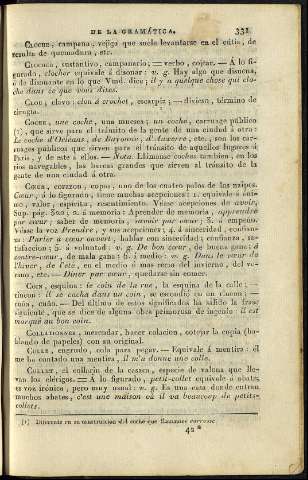 DE LA GRAMÁTICA. 331
CLOCHE, campana, vejiga que suele levantarse en el cútis, de
resulta de quemadura, etc.
CLOCHER, sustantivo, campanario; = verbo, cojear. — Á lo fi-
gurado, clocher equivale á disonar: v. g. Hay algo que disuena,
ó de disonante en lo que Vmd. dice; il y a quelque chose qui clo-
che dans ce que vous dites.
CLOU, clavo: clou à crochet, escarpia; — divieso, término de
cirugía.
COCHE, une coche, una muesca; = un coche, carruage público
(1), que sirve para el tránsito de la gente de una ciudad á otra:
Le coche d'Orléans, de Bayonne, d'Auxerre, etc., son los car-
ruages públicos que sirven para el tránsito de aquellos lugares á
Paris, y de este á ellos. — Nota. Llámanse coches tambien, en los
rios navegables, las barcas grandes que sirven al tránsito de la
gente de una ciudad á otra.
CŒUR, corazon, copas, uno de los cuatro palos de los naipes.
Cœur, á lo figurado, tiene muchas acepciones: 1. equivale á áni-
mo, valor, espíritu, resentimiento. Véase acepciones de avoir,
Sup. pág. 320; 2. á memoria: Aprender de memoria, apprendre
par cœur; saber de memoria, savoir par cœur; 3. á empeño.
Véase la voz Prendre, y sus acepciones; 4. á sinceridad, confian-
za: Parler à cœur ouvert, hablar con sinceridad; confianza, sa-
tisfaccion; 5. á voluntad: v. g. De bon cœur, de buena gana; à
contre-cœur, de mala gana; 6. á medio: v. g. Dans le cœur de
l'hiver, de l'été, en el medio ó mas recio del invierno, del ve-
rano, etc. — Diner par cœur, quedarse sin comer.
COIN, esquina: le coin de la rue, la esquina de la calle; —
rincon: il se cacha dans un coin, se escondió en un rincon; —
cuña. — Del último de estos significados ha salido la frase
siguiente, que se dice de alguna obra primorosa de ingenio: il est
marqué au bon coin.
COLLATIONNER, merendar, hacer colacion, cotejar la copia (ha-
blando de papeles) con su original.
COLLE, engrudo, cola para pegar. — Equivale á mentira: él
me ha contado una mentira, il m'a donné une colle.
COLLET, el collarin de la casaca, especie de valona que lle-
van los clérigos. = Á lo figurado, petit-collet equivale á abate;
es voz irónica, pero muy usual: v. g. Es una casa donde entran
muchos abates, c'est une maison où il va beaucoup de petits-
collets.
(1) Diferente en su construccion del coche que llamamos carrosse
42*